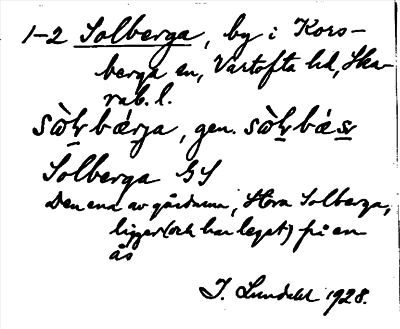 1-2 Solberga, by i Kors-
berga sn, Vartofta hd, Ska-
rab. l.
sὼlbǽrja, gen. sὼlbǽs
Solberga GS
Den ena av gårdarna, Stora Solberga,
ligger (och har legat) på en
ås
J. Lundahl 1928.